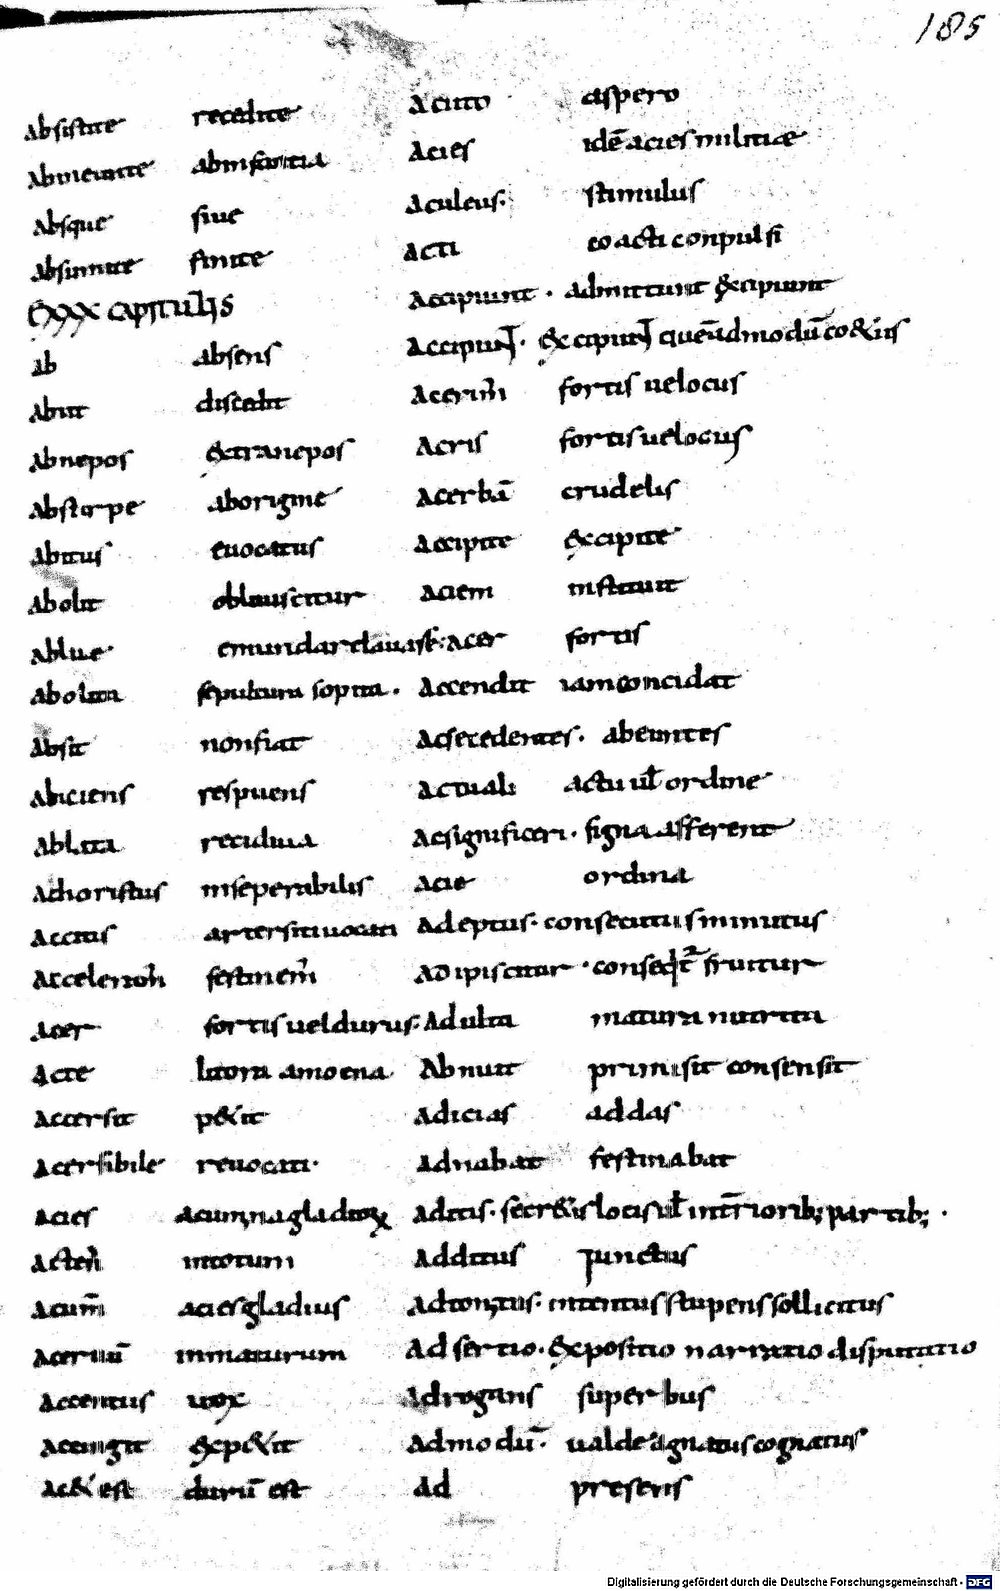 185
Absistite recedite
Abineunte abinfantia
Absque siue
Absinnite finite
EXXX capitulis
Ab absens
Abiit discedit
Abnepos &cranepos
Abstirpe aborigine
Abitus euocatus
Abolit obliuiscitur
Ablue emundare
Abolita sepultura sopita.
Absit nonfiat
Abiciens respuens
Ablata recidiua
Achoristus inseperabilis
Accitus
festinem̄
Acer fortis uel durus.
Acte litora amoena
Accersit p&it
Acersibile reuocati.
Acies
intotum
Acum̄ acies gladius
Aceruū inmaturum
Accentus uox
Accingit &xp&it
Ac& est durū est
Acuto aspero
Acies idē acies militiae
Aculeus. stimulus
Acti coacti conpulsi
Accipiunt. admittunt &xcipiunt
fortis uelocus
Acris fortis uelocus
Acerbā crudelis
Accipite &xcipite
Aciem instituit
Acer fortis
Accendit iamconcidat
Acsecedentes. abeuntes
Actuali actu uł ordine
Acsignificeri. signa afferent
Acie ordina
Adeptus. consecutus minutus
Adipiscitur fruitur
Adulta matura nutrita
Abnuit primisit consensit
Adicias addas
Adnabat festinabat
Aditis. secr&is locis uł
Additus Junctus
Adtonitus. intentus stupens sollicitus
Adsertio. &xpositio narratio disputatio
Adrogans superbus
Admodū. ualde agnatus cognatus
Ad presens
Digitalisierung gefördert durch die Deutsche Forschungsgemeinschaft - DFG